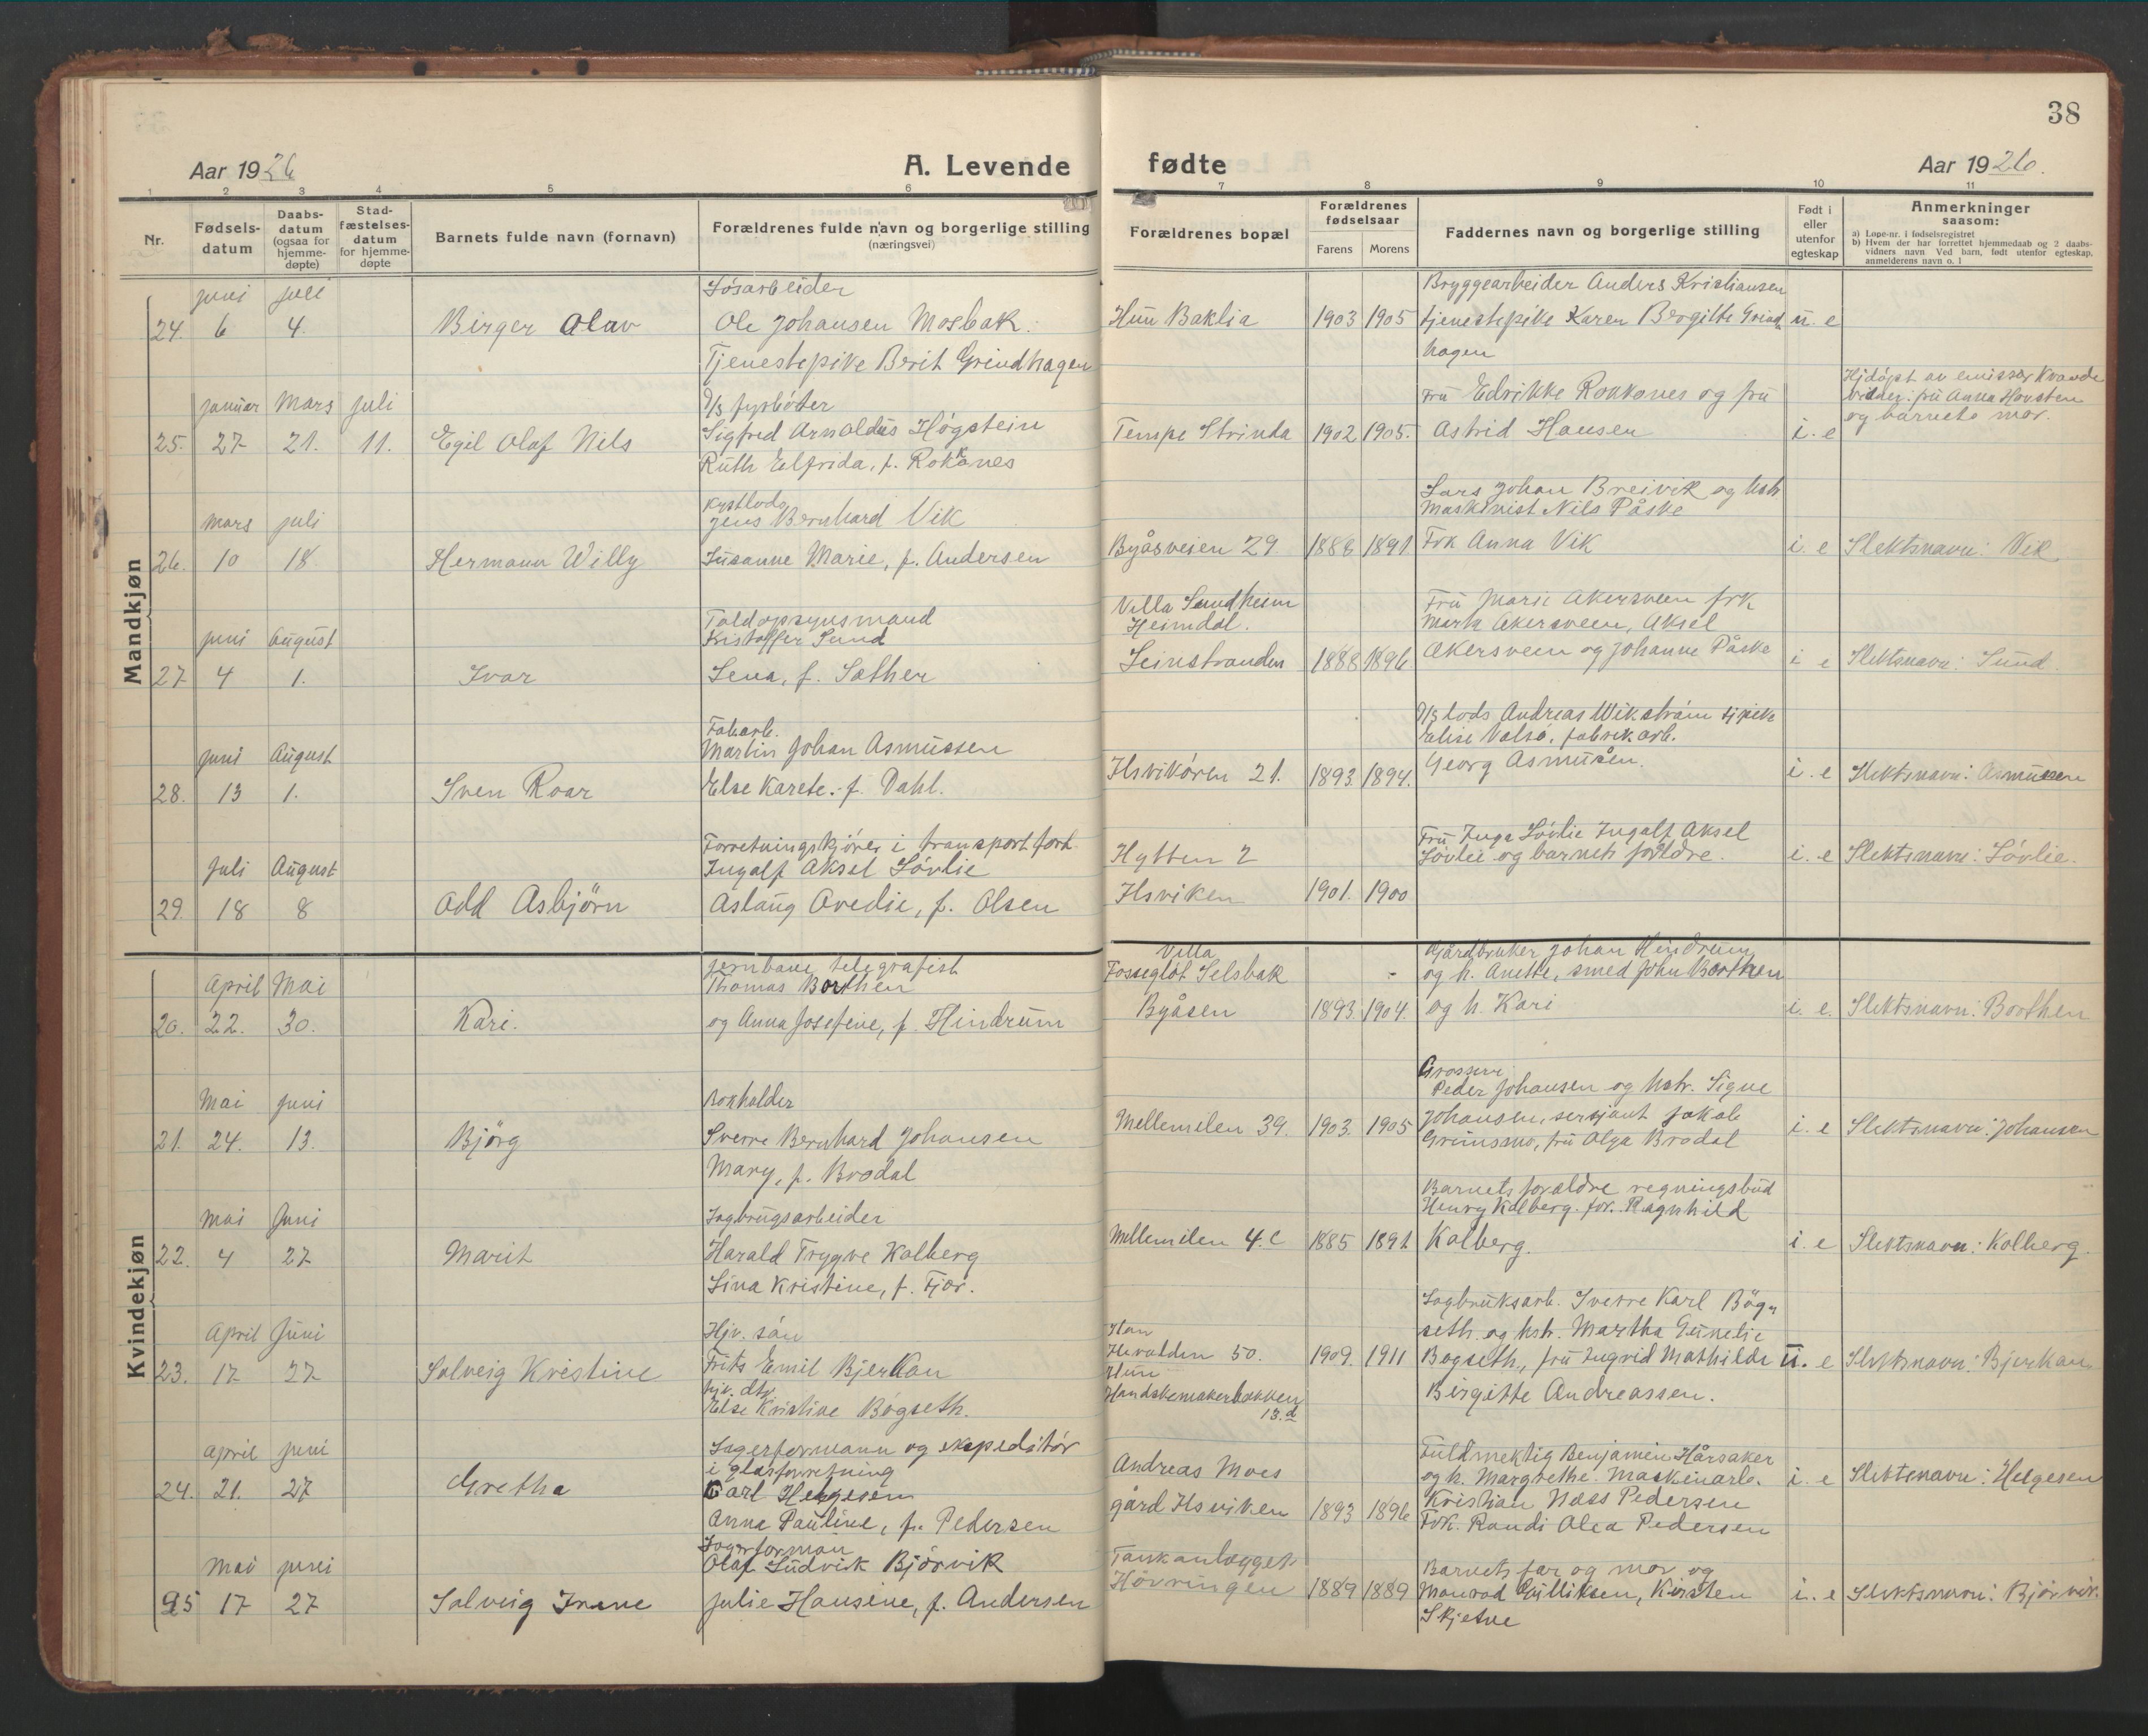 38
Aar 1926
A. Levende fødte
Aar 1926.
1 2 3 4 5 6 7 8 9 10 11
Nr.
Fødsels-
datum
Daabs-
datum
(ogsaa for
hjemme-
døpte)
Stad-
fæstelses-
datum
for hjemme-
døpte
Barnets fulde navn (fornavn)
Forældrenes fulde navn og borgerlige stilling
(næringsvei)
Forældrenes bopæl
Forældrenes
fødselsaar
Farens Morens
Faddernes navn og borgerlige stilling
Født i
eller
utenfor
egteskap
Anmerkninger
saasom:
a) Løpe-nr. i fødselsregistret
b) Hvem der har forrettet hjemmedaab og 2 daabs-
vidners navn Ved barn, født utenfor egteskap,
anmelderens navn o. l
Mandkjøn
juni juli
24. 6 4.
Birger Olav
Løsarbeider
Ole Johansen Mosbak.
Tjenestepike Berit Grindhagen
Hun Baklia
1903 1905
Bryggearbeider Anders Kristiansen
tjenestepike Karen Bergitte Grind
hagen
u. e
januar Mars juli
25. 27 21. 11.
Egil Olaf Nils
D/S fyrbøter
Sigfred Arnoldus Høgstein
Ruth Elfrida, f. Rokkones
Tempe Strinda
1902 1905.
Fru Edrikke Rokkones og fru
Astrid Hansen
i. e
Hjdøpt av emissær Kvande
vidner: fru Anna Hovsten
og barnets mor.
mars juli
26. 10 18
Hermann Willy
Kystlods
Jens Bernhard Vik
Susanne Marie, f. Andersen
Byåsveien 29.
1888 1891
Lars Johan Breivik og hstr
Maskinist Nils Påske
Frk Anna Vik
i. e
Slektsnavn: Vik
juni August
27 4 1.
Ivar
Toldopsynsmand
Kristoffer Sund
Lena, f. Sæther
Villa Sundheim
Heimdal.
Leinstranden
1888 1896
Fru Marie Akersveen frk
Marta Akersveen, Aksel
Akersveen og Johanne Påske
i e
Slektsnavn: Sund.
juni August
28. 13 1.
Sven Roar
Fabarb.
Martin Johan Asmussen
Else Karete. f. Dahl.
Ilsvikøren 21.
1893. 1894.
D/S lods Andreas Wikstrøm tj pike
Elise Valsø, fabrikarb.
Georg Asmusen.
i. e
Slektsnavn: Asmussen
Juli August
29. 18 8
Odd Asbjörn
Forretningskjører i transportforr.
Ingolf Aksel Løvlie
Aslaug Ovedie, f. Olsen
Hytten 2
Ilsviken
1901. 1900
Fru Inga Løvlie Ingolf Aksel
Løvlie og barnets foreldre.
i. e
Slektsnavn: Løvlie.
Kvindekjøn
April Mai
20. 22. 30.
Kari.
Jernbane telegrafist
Thomas Borthen
og Anna Josefine, f. Hindrum
Villa
Fossegløt Selsbak
Byåsen
1893. 1904.
Gårdbruker Johan Hindrum
og h. Anette, smed John Borthen
og h. Kari
i. e.
Slektsnavn: Borthen
Mai juni
21. 24. 13.
Björg
Bokholder
Sverre Bernhard Johansen
Mary, f. Brodal
Mellemilen 39.
1903. 1905
Grosserer
Peder Johansen og hstr. Signe
Johansen, sersjant Jakob
Grimsmo, fru Olga Brodal
i. e
Slektsnavn: Johansen
mai Juni
22. 4 27
Marit
Sagbrugsarbeider
Harald Trygve Kolberg
Lina Kristine, f. Fjær.
Mellemilen 4. c
1885 1891
Barnets forældre regningsbud
Henry Kolberg. frk. Ragnhild
Kolberg.
i. e
Slektsnavn: Kolberg.
April Juni
23. 17 27
Solveig Kristine
Hjv. sön
Frits Emil Bjerkan
hjv. dtr.
Else Kristine Bøgseth.
Han
Ilevolden 50.
Hun
Handskemakerbakken
13. d
1909. 1911
Sagbruksarb. Sverre Karl Bög-
seth. og hstr. Martha Gunelie
Bøgseth, fru Ingrid Mathilde
Birgitte Andreassen.
u. e
Slektsnavn: Bjerkan
april juni
24. 21. 27
Gretha
Lagerformann og ekspeditör
i glasforretning
Carl Helgesen
Anna Pauline, f. Pedersen
Andreas Moes
gård Ilsviken
1893 1896
Fuldmektig Benjamin Hårsaker
og h. Margrethe. Maskinarb.
Kristian Næss Pedersen
Frk. Randi Alea Pedersen
i. e
Slektsnavn: Helgesen
Mai juni
25 17 27
Solveig Irene
Lagerforman
Olaf Ludvik Björvik
Julie Hansine, f. Andersen
Tankanlægget
Høvringen
1889 1889
Barnets far og mor og
Monrad Gulliksen, Kirsten
Skjetne
i. e
Slektsnavn: Björvik.